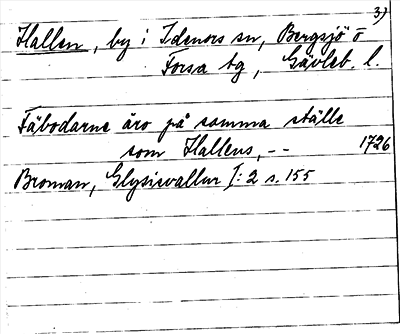 3)
Hallen, by i Idenors sn, Bergsjö o
Forsa tg, Gävleb. l.
Fäbodarne äro på samma ställe
som Hallens, -- 1726
Broman, Glysisvallur I: 2 s. 155